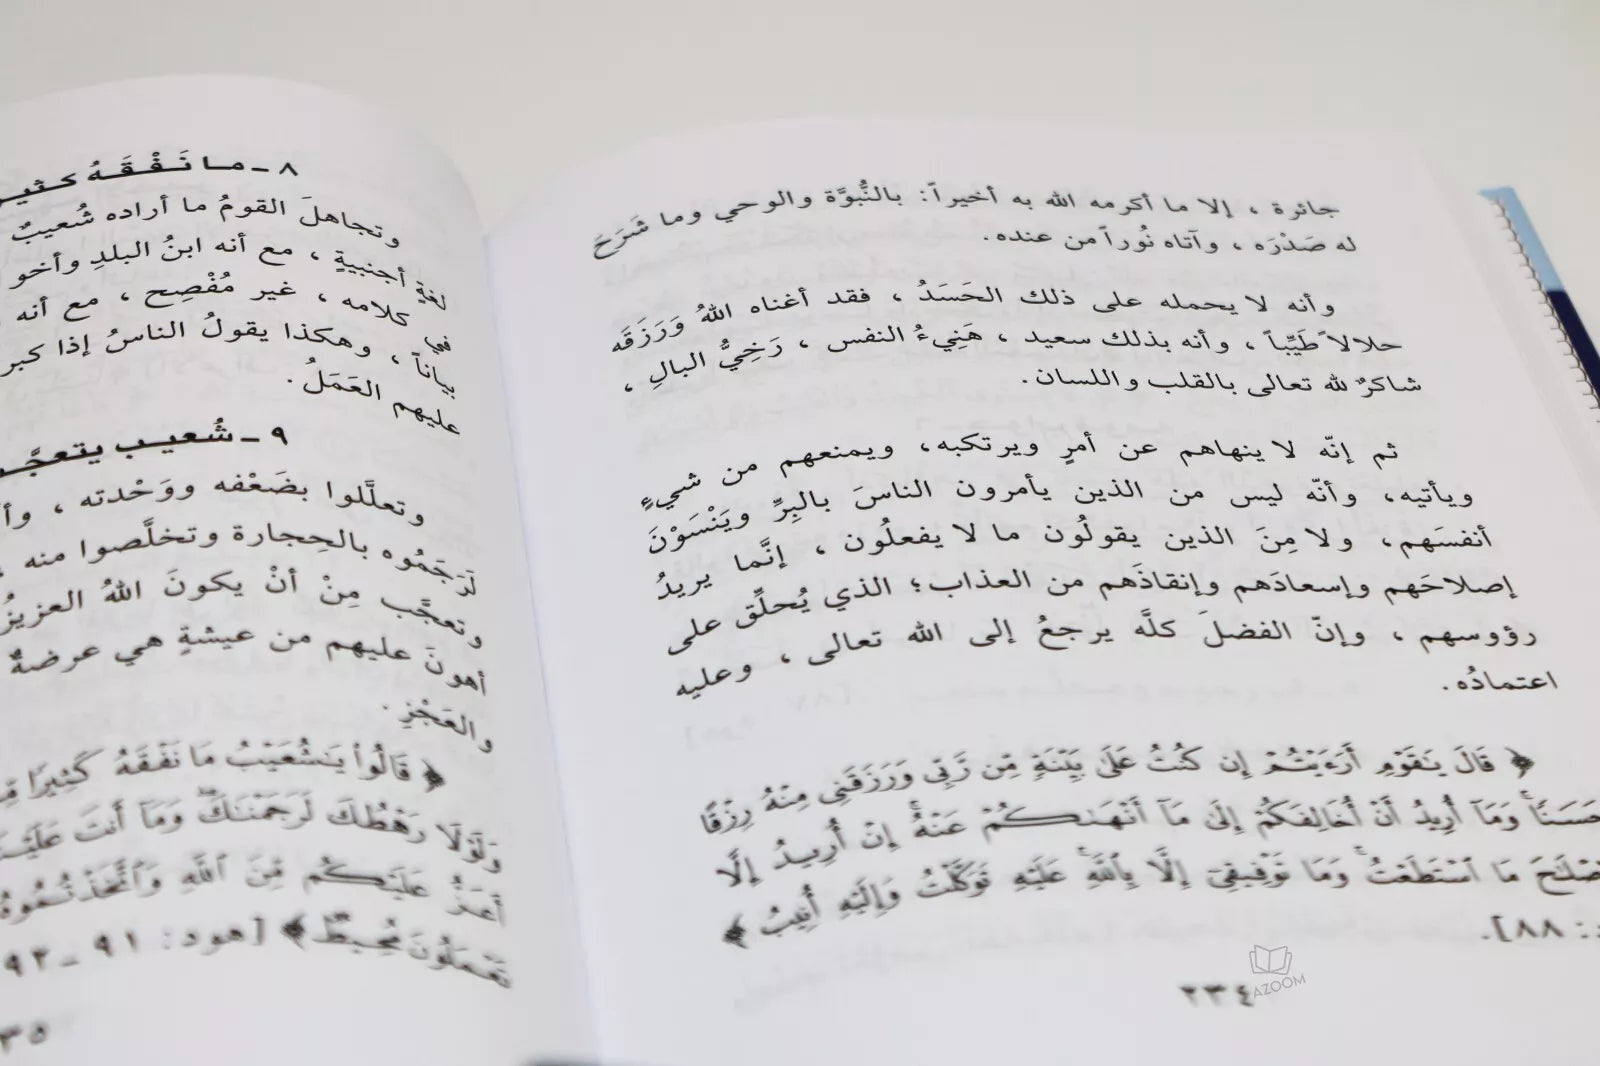 جائرة ، إلا ما أكرمه الله به أخيراً: بالنُّبوَّة والوحي وما شَرَحَ
له صَدْرَه ، وآتاه نُوراً من عنده.
وأنه لا يحمله على ذلك الحَسَدُ ، فقد أغناه اللهُ وَرَزَقَه
حلالاً طَيِّباً ، وأنه بذلك سعيد ، هَنِيءُ النفس ، رَخِيُّ البالِ ،
شاكرٌ لله تعالى بالقلب واللسان.
ثم إنّه لا ينهاهم عن أمرٍ ويرتكبه، ويمنعهم من شيءٍ
ويأتيه، وأنّه ليس من الذين يأمرون الناسَ بالبِرِّ ويَنْسَوْنَ
أنفسَهم، ولا مِنَ الذين يقولُون ما لا يفعلُون ، إنَّما يريدُ
إصلاحَهم وإسعادَهم وإنقاذَهم من العذاب؛ الذي يُحلِّق على
رؤوسهم ، وإنّ الفضلَ كلَّه يرجعُ إلى الله تعالى ، وعليه
اعتمادُه.
﴿ قَالَ يَٰقَوْمِ أَرَءَيْتُمْ إِن كُنتُ عَلَىٰ بَيِّنَةٍ مِّن رَّبِّي وَرَزَقَنِي مِنْهُ رِزْقًا
حَسَنًا ۚ وَمَآ أُرِيدُ أَنْ أُخَالِفَكُمْ إِلَىٰ مَآ أَنْهَىٰكُمْ عَنْهُ ۚ إِنْ أُرِيدُ إِلَّا
صْلَٰحَ مَا ٱسْتَطَعْتُ ۚ وَمَا تَوْفِيقِيٓ إِلَّا بِٱللَّهِ ۚ عَلَيْهِ تَوَكَّلْتُ وَإِلَيْهِ أُنِيبُ ﴾
د: ٨٨].
٢٣٤
AZOOM
٨ ـ ما نَفْقَهُ كثيـ
وتجاهلَ القومُ ما أراده شُعيبٌ
لغةٍ أجنبيةٍ ، مع أنه ابنُ البلدِ وأخو
في كلامه ، غير مُفْصِح ، مع أنه
بياناً ، وهكذا يقولُ الناسُ إذا كبر
عليهم العَمَلُ.
٩ ـ شُعيب يتعجَّـ
وتعلَّلوا بضَعْفه ووَحْدته ، وأ
لَرَجَمُوه بالحِجارة وتخلَّصوا منه ،
وتعجَّب مِنْ أنْ يكونَ اللهُ العزيزُ
أهونَ عليهم من عيشةٍ هي عرضةٌ
والعَجْزِ.
﴿ قَالُوا۟ يَٰشُعَيْبُ مَا نَفْقَهُ كَثِيرًا مِّ
وَلَوْلَا رَهْطُكَ لَرَجَمْنَٰكَ ۖ وَمَآ أَنتَ عَلَيْنَـ
أَعَزُّ عَلَيْكُم مِّنَ ٱللَّهِ وَٱتَّخَذْتُمُوهُ
تَعْمَلُونَ مُحِيطٌ ﴾ [هود: ٩١ ـ ٩٢
٣٥